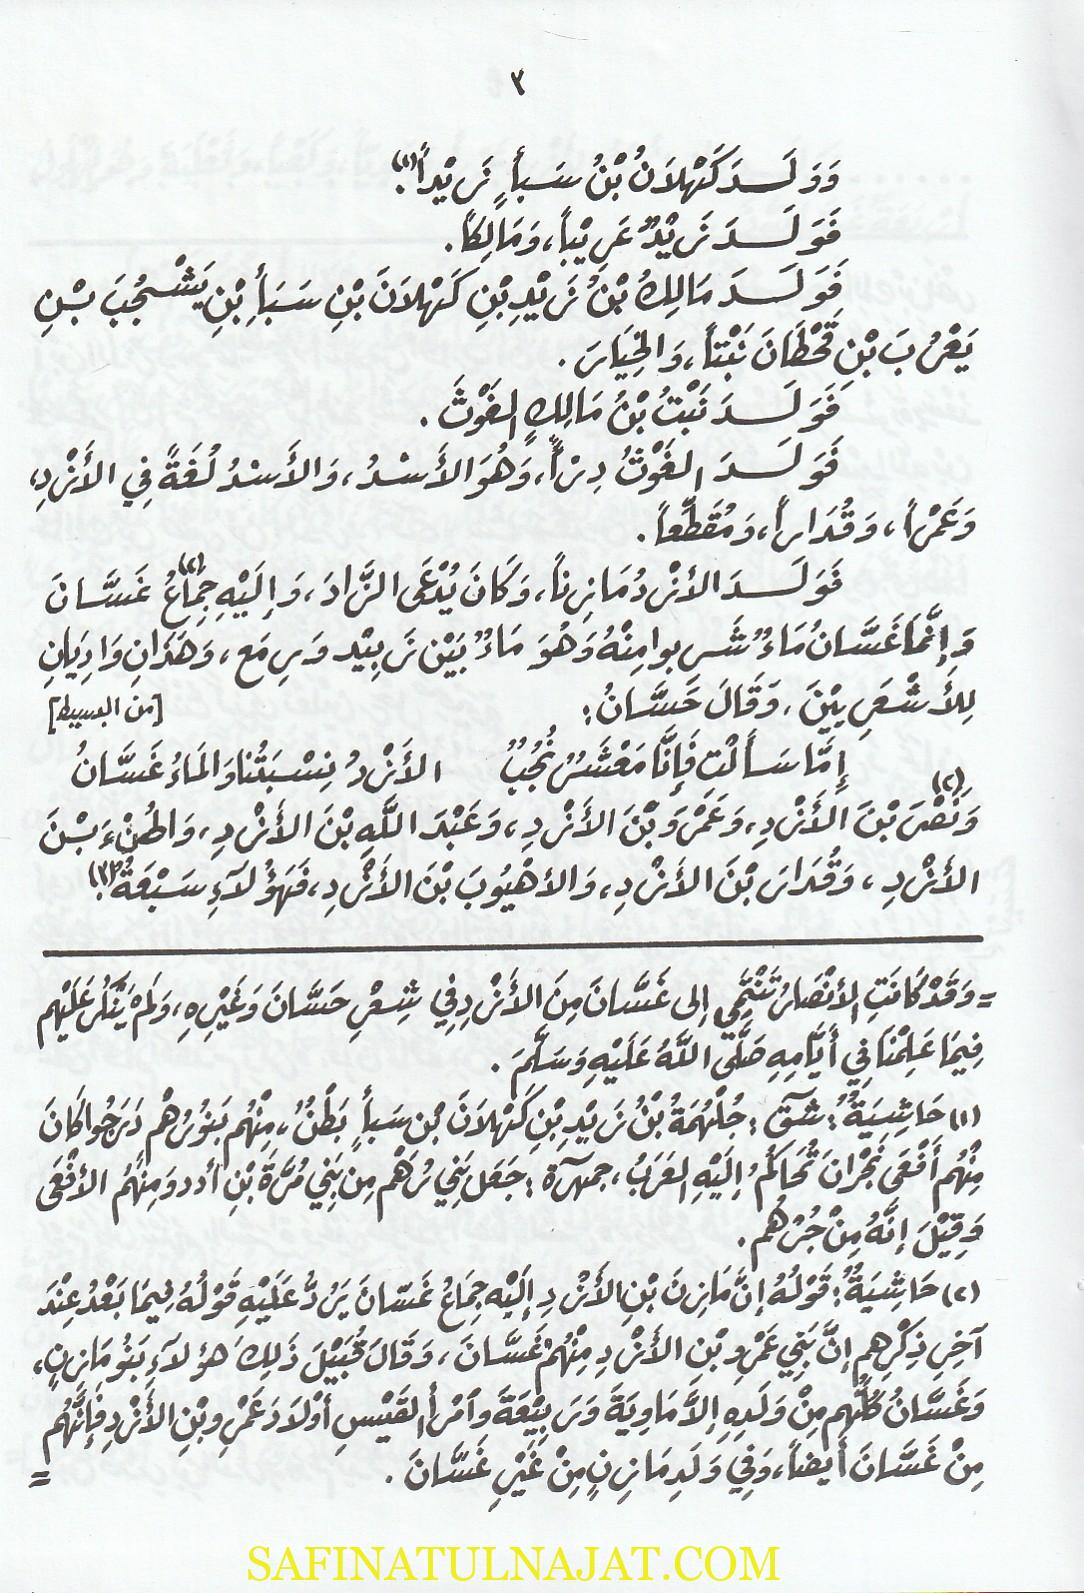 ٣
وَوَلَدَ كَهْلَانُ بْنُ سَبَأٍ زَيْداً(١).
فَوَلَدَ زَيْدٌ عَرِيْباً، وَمَالِكاً.
فَوَلَدَ مَالِكُ بْنُ زَيْدِ بْنِ كَهْلَانَ بْنِ سَبَأِ بْنِ يَشْجُبَ بْنِ
يَعْرُبَ بْنِ قَحْطَانَ نَبْتاً، وَالخِيَارَ.
فَوَلَدَ نَبْتُ بْنُ مَالِكٍ الغَوْثَ.
فَوَلَدَ الغَوْثُ دِرْاً، وَهُوَ الأَسْدُ، وَالأَسْدُ لُغَةً فِي الأَزْدِ،
وَعَمْراً، وَقُدَاراً، وَمُقَطَّعاً.
فَوَلَدَ الأَزْدُ مَازِناً، وَكَانَ يُدْعَى الزَّادَ، وَإِلَيْهِ جِمَاعُ(٢) غَسَّانَ
وَإِنَّمَا غَسَّانُ مَاءٌ شَرِبوا مِنْهُ وَهُوَ مَاءٌ بَيْن زَبِيْد وَرِمَع، وَهَذَانِ وَادِيَانِ
لِلأَشْعَرِيِيْنَ، وَقَالَ حَسَّانُ: [من البسيط]
إِمَّا سَأَلْتِ فَإِنَّا مَعْشَرٌ نُجُبٌ الأَزْدُ نِسْبَتُنَا وَالمَاءُ غَسَّانُ
وَنَصْرَ(٢) بْنَ الأَزْدِ، وَعَمْرَو بْنَ الأَزْدِ، وَعَبْدَ اللَّهِ بْنَ الأَزْدِ، وَالهِنْءَ بْنَ
الأَزْدِ، وَقُدَارَ بْنَ الأَزْدِ، وَالأَهْيُوبَ بْنَ الأَزْدِ، فَهَؤُلَاءِ سَبْعَةٌ(٣).
= وَقَدْ كَانَتِ الأَنْصَارُ تَنْتَمِي إلى غَسَّانَ مِنَ الأَزْدِ فِي شِعْرِ حَسَّانَ وَغَيْرِهِ، وَلَمْ يَنْكَرْ عَلَيْهِم
فِيمَا عَلِمْنَا فِي أَيَّامِهِ صَلَّى اللَّهُ عَلَيْهِ وَسَلَّمَ.
(١) حَاشِيَةٌ: شق: جُلْهُمَةُ بْنُ زَيْدِ بْنِ كَهْلَانَ بْن سَبأٍ بَطْنٌ، مِنْهُم بَنُو زُهْم دَرَجُوا كَانَ
مِنْهُم أَفْعَى نَجْرَانَ تَحَاكَمُ إِلَيْهِ العَرَبُ، جمهرة: جَعَل بَنِي زُهْم مِن بَنِي مُرَّةَ بْنِ أدد وَمِنْهُمُ الأَفْعَى
وَقِيْلَ إِنَّهُ مِنْ جُرْهُم.
(٢) حَاشِيَةٌ: قَوْلُهُ إِنَّ مَازِنَ بْنِ الأَزْدِ إِلَيْهِ جِمَاعُ غَسَّانَ يَرُدُّ عَلَيْهِ قَوْلُهُ فِيمَا بَعْدُ عِنْدَ
آخِرِ ذِكْرِهِم إِنَّ بَنِي عَمْرِو بْن الأَزْدِ مِنْهُمْ غَسَّانَ، وَقَالَ قُبَيْلَ ذَلِكَ هؤلاءِ بَنُو مَازِنٍ،
وَغَسَّانُ كُلُّهُم مِنْ وَلَدِهِ إِلَّا مَاوِيَةَ وَرَبِيْعَةَ وَآمْرأَ القَيْسِ أَوْلَادَ عَمْرِو بْنِ الأَزْدِ فَإِنَّهُم
مِنْ غَسَّانَ أَيضاً، وَفِي وَلَدِ مَازِنٍ مِنْ غَيْرِ غَسَّانَ. =
SAFINATULNAJAT.COM